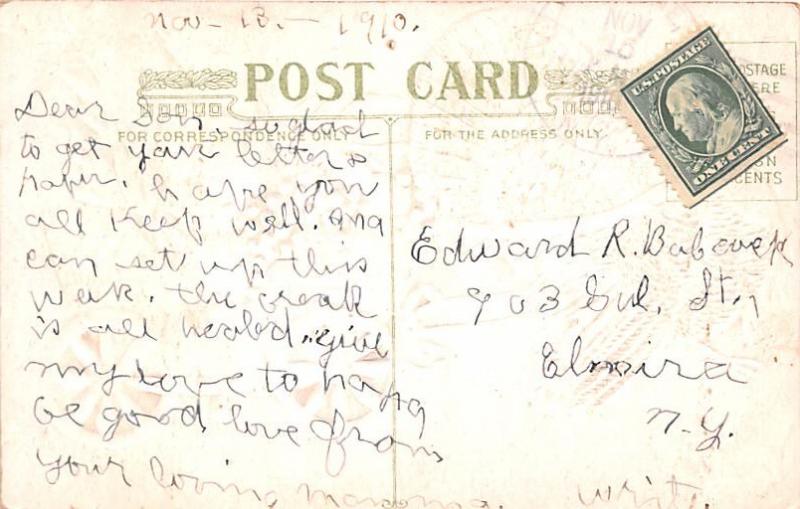 Nov- 13.- 1910.
POST CARD
FOR CORRESPONDENCE ONLY
FOR THE ADDRESS ONLY
Dear Son, so glad
to get your letter &
paper. hope you
all keep well. Ma
can set up this
week. the
is all healed. give
my love to papa
be good love from
your loving mamma. write.
NOV
U.S. POSTAGE
ONE CENT
Edward R. Babcock
903 Sul. St.,
Elmira
N-Y.